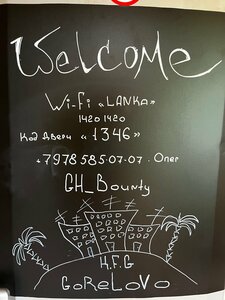 Welcome
Wi-Fi «LANKA»
1420 1420
Код двери «1346»
+7978 585-07-07. Олег
GH_Bounty
H.F.G
GoReLoVo